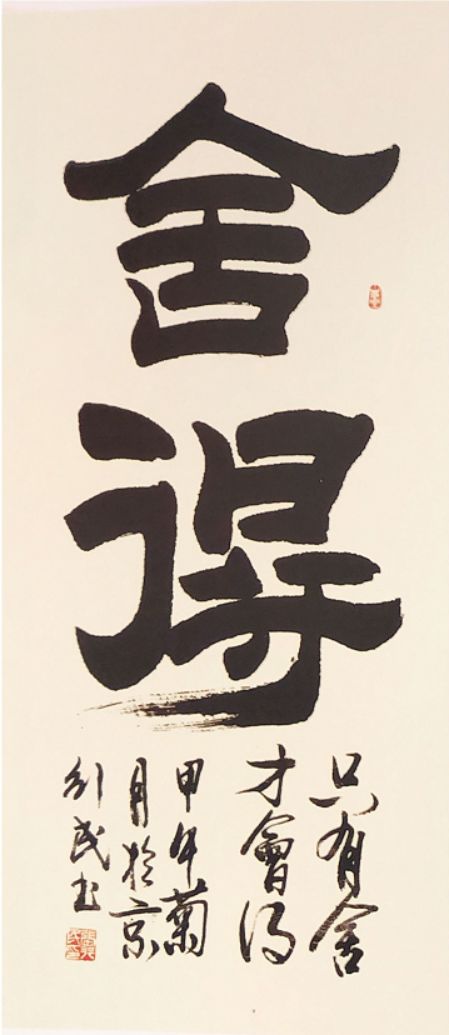 舍得
只有舍
才會得
甲午菊
月於京
民书